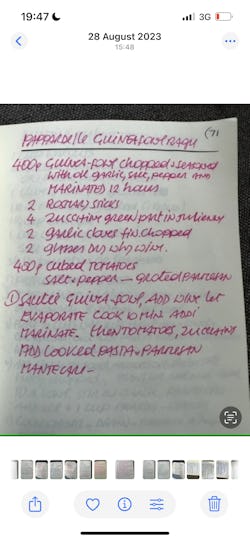 19:47
3G
28 August 2023
15:48
PAPPARDELLE GUINEAFOWL RAGU
(71
400g GUINEA-FOWL CHOPPED & SEASONED
WITH OIL GARLIC, SALT, PEPPER AND
MARINATED 12 hours
2 ROSMARY STICKS
4 ZUCCHINE green part in JULIENNE
2 garlic cloves fin. chopped
2 glasses DRY White WINE.
400g CUBED TOMATOES
SALT & pepper — GRATED PARMESAN
① Sauté GUINEA-FOWL, ADD WINE LET
EVAPORATE COOK 10 MIN. ADD
MARINATE. then TOMATOES, ZUCCHINIS
ADD COOKED PASTA & PARMESAN
MANTECARE –